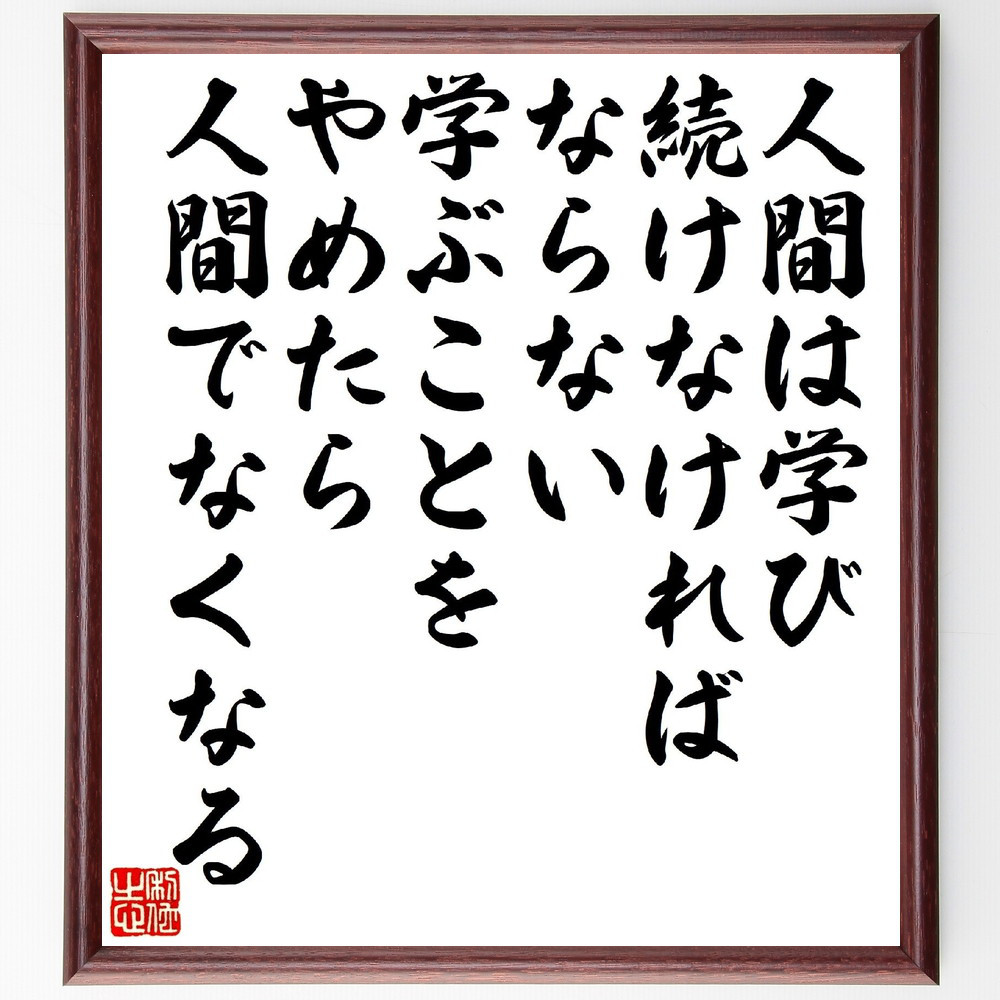 人間は学び
続けなければ
ならない
学ぶことを
やめたら
人間でなくなる